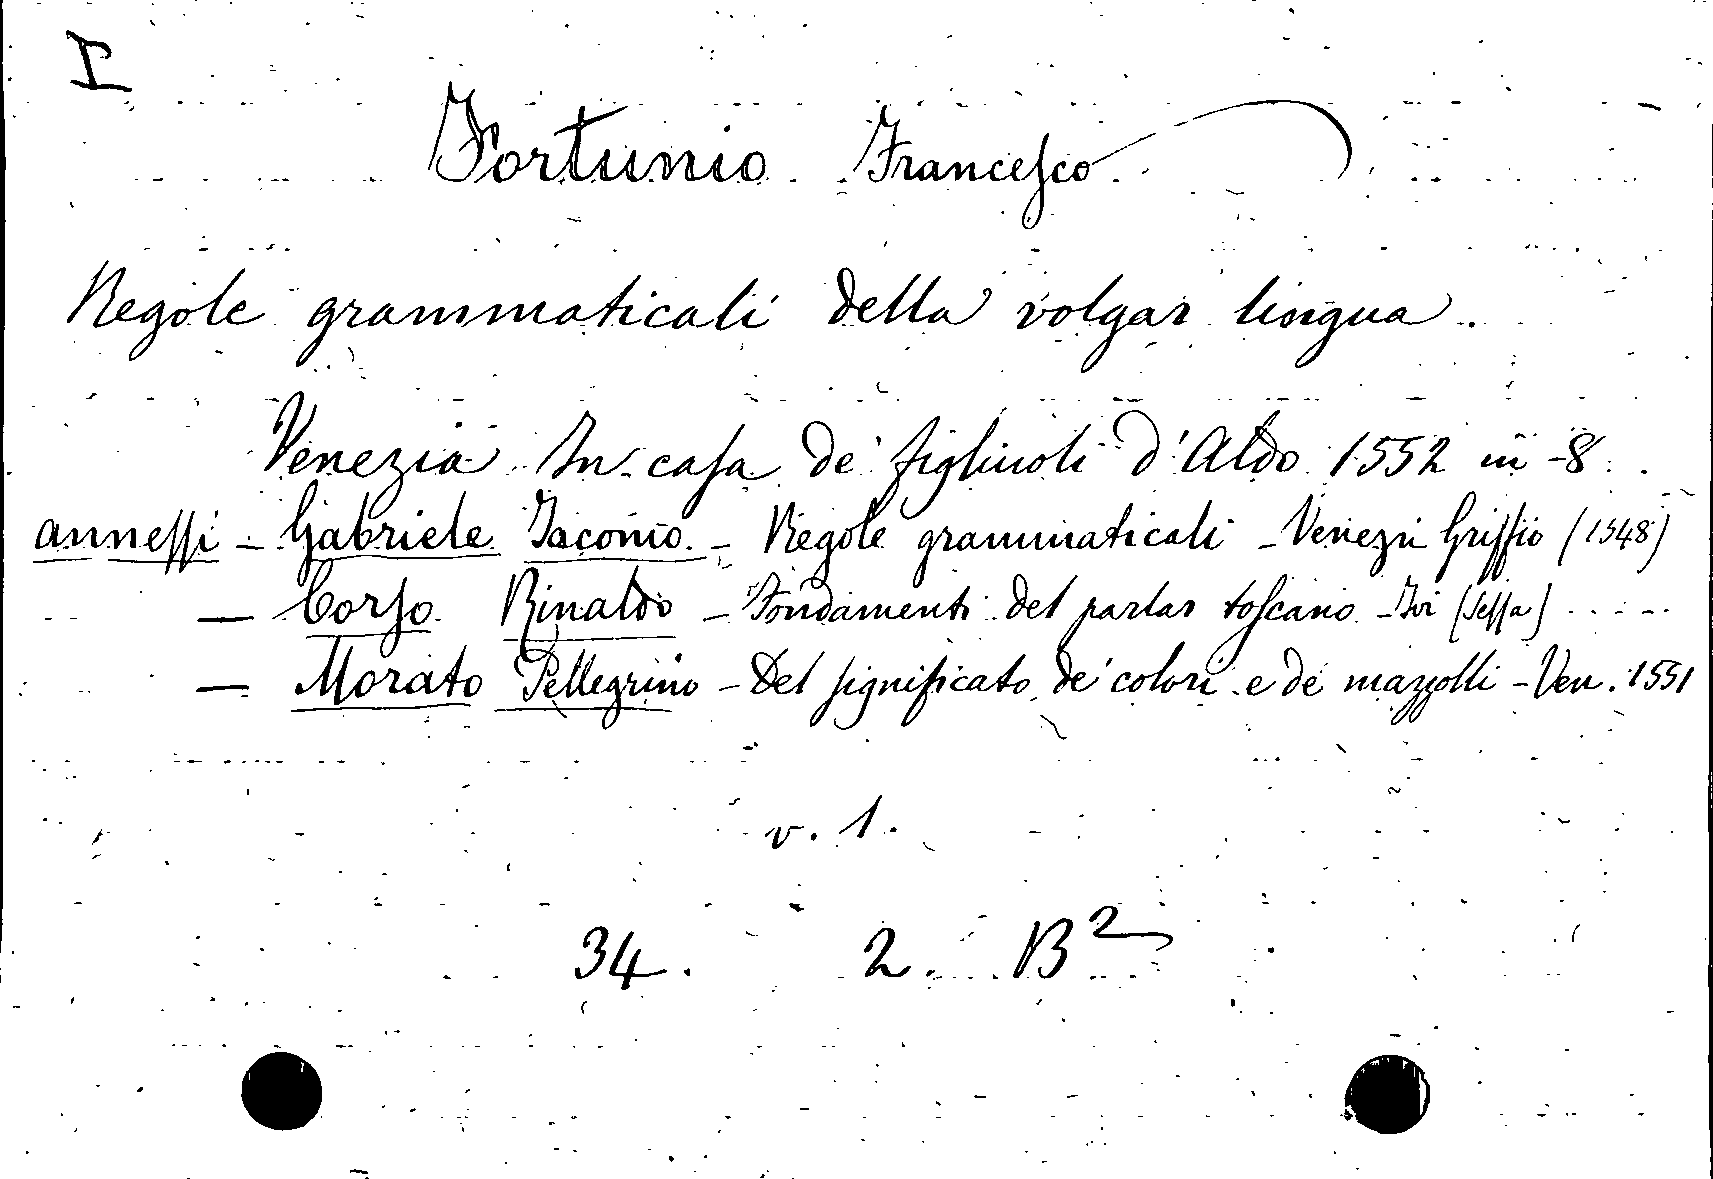 I
Fortunio Francesco
Regole grammaticali della volgar lingua.
Venezia In casa de' figliuoli d'Aldo 1552 in-8.
annessi - Gabriele Iacomo - Regole grammaticali - Venezia Griffio (1548)
— Corso Rinaldo - Fondamenti del parlar toscano - Ivi (Sessa) .....
— Morato Pellegrino - Del significato de' colori e de' mazzolli - Ven. 1551
v. 1.
34. 2. B²